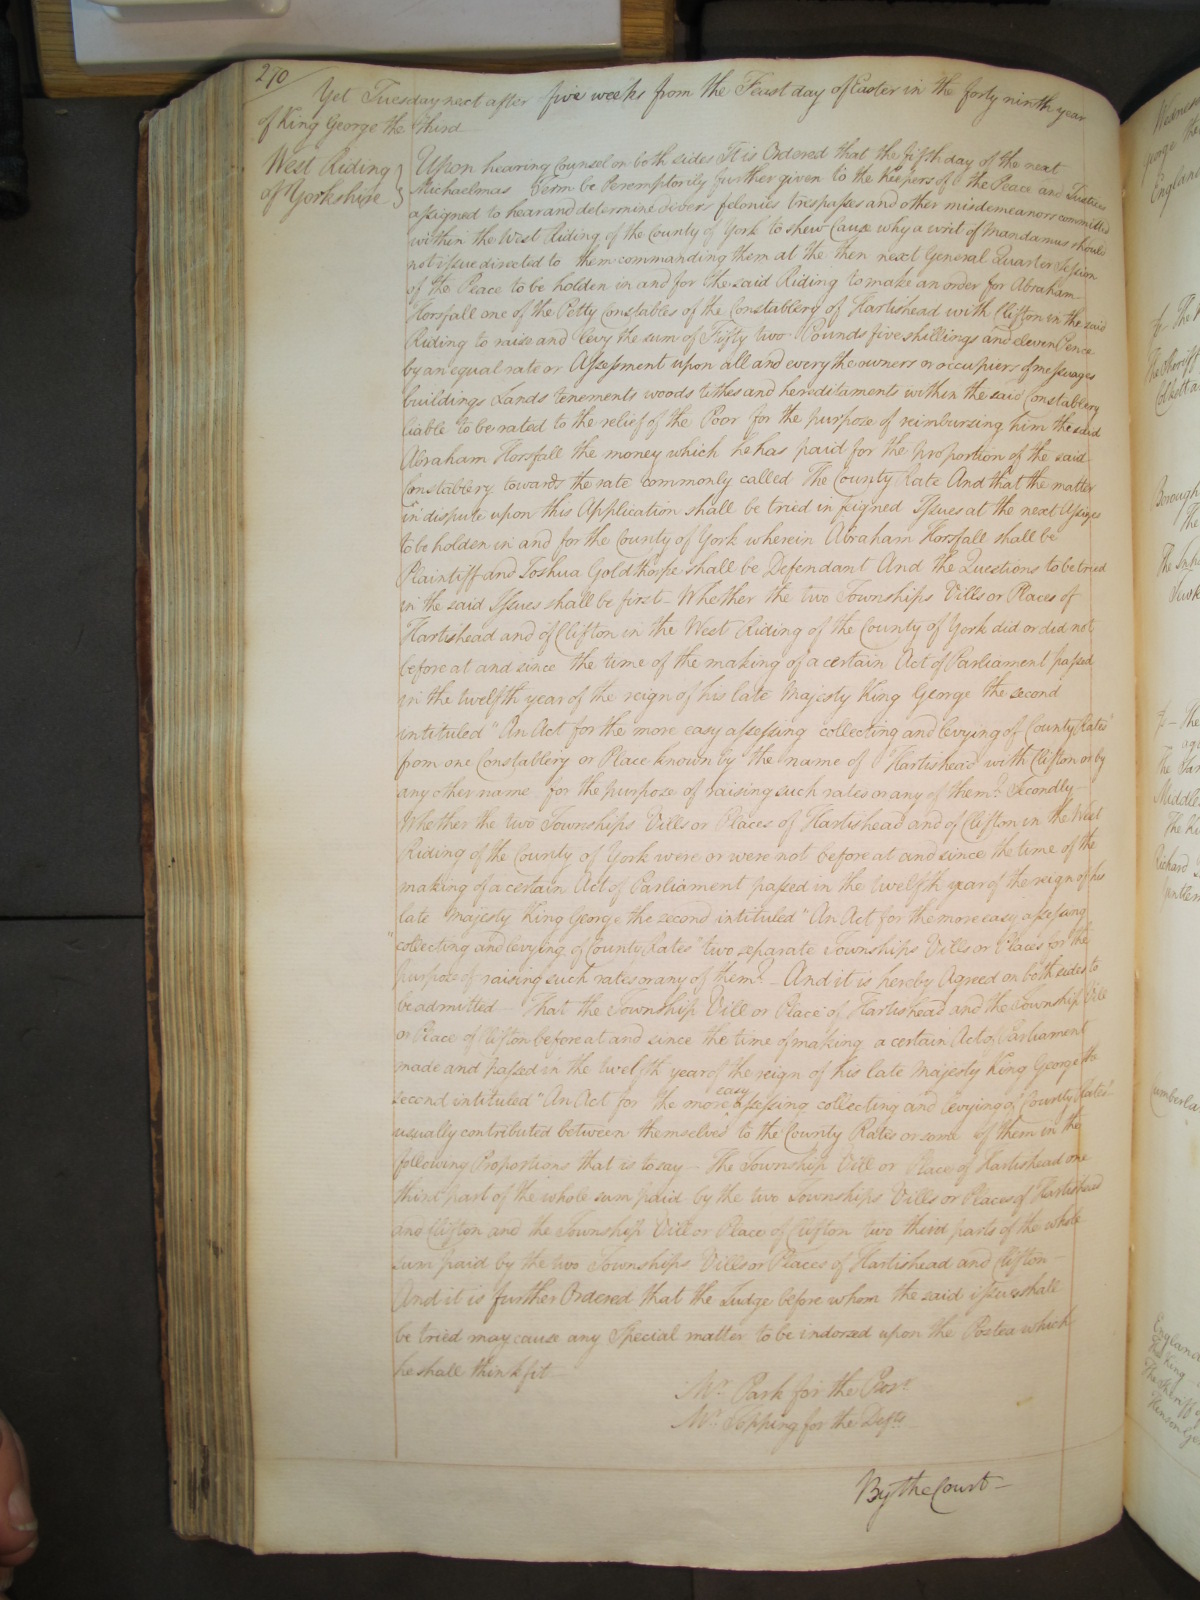 270
Yet Tuesday next after five weeks from the Feast day of Easter in the forty ninth year
of King George the third
West Riding
of Yorkshire
Upon hearing Counsel on both sides It is Ordered that the fifth day of the next
Michaelmas Term be Peremptorily further given to the Keepers of the Peace and Justices
assigned to hear and determine divers felonies trespasses and other misdemeanors committed
within the West Riding of the County of York to shew Cause why a writ of Mandamus should
not issue directed to them commanding them at the then next General Quarter Session
of the Peace to be holden in and for the said Riding to make an order for Abraham
Horsfall one of the Petty Constables of the Constablery of Hartishead with Clifton in the said
Riding to raise and levy the sum of Fifty two Pounds five shillings and eleven Pence
by an equal rate or Assessment upon all and every the owners or occupiers of messuages
buildings Lands tenements woods tithes and hereditaments within the said Constablery
liable to be rated to the relief of the Poor for the purpose of reimbursing him the said
Abraham Horsfall the money which he has paid for the proportion of the said
Constablery towards the rate commonly called The County Rate And that the matter
in dispute upon this Application shall be tried in feigned Issues at the next Assizes
to be holden in and for the County of York wherein Abraham Horsfall shall be
Plaintiff and Joshua Goldthorpe shall be Defendant And the Questions to be tried
in the said Issues shall be first - Whether the two Townships Vills or Places of
Hartishead and of Clifton in the West Riding of the County of York did or did not
before at and since the time of the making of a certain Act of Parliament passed
in the twelfth year of the reign of his late Majesty King George the second
intituled "An Act for the more easy assessing collecting and levying of County Rates"
from one Constablery or Place known by the name of Hartishead with Clifton or by
any other name for the purpose of raising such rates or any of them? Secondly -
Whether the two Townships Vills or Places of Hartishead and of Clifton in the West
Riding of the County of York were or were not before at and since the time of the
making of a certain Act of Parliament passed in the twelfth year of the reign of his
late Majesty King George the second intituled "An Act for the more easy assessing
"collecting and levying of County Rates" two separate Townships Vills or Places for the
purpose of raising such rates or any of them? - And it is hereby Agreed on both sides to
be admitted - That the Township Vill or Place of Hartishead and the Township Vill
or Place of Clifton before at and since the time of making a certain Act of Parliament
made and passed in the twelfth year of the reign of his late Majesty King George the
second intituled "An Act for the more easy assessing collecting and levying of County Rates"
usually contributed between themselves to the County Rates or some of them in the
following Proportions that is to say - the Township Vill or Place of Hartishead one
third part of the whole sum paid by the two Townships Vills or Places of Hartishead
and Clifton and the Township Vill or Place of Clifton two third parts of the whole
sum paid by the two Townships Vills or Places of Hartishead and Clifton -
And it is further Ordered that the Judge before whom the said issues shall
be tried may cause any Special matter to be indorsed upon the Postea which
he shall think fit
Mr. Park for the Pros.r
Mr. Topping for the Defts
By the Court -